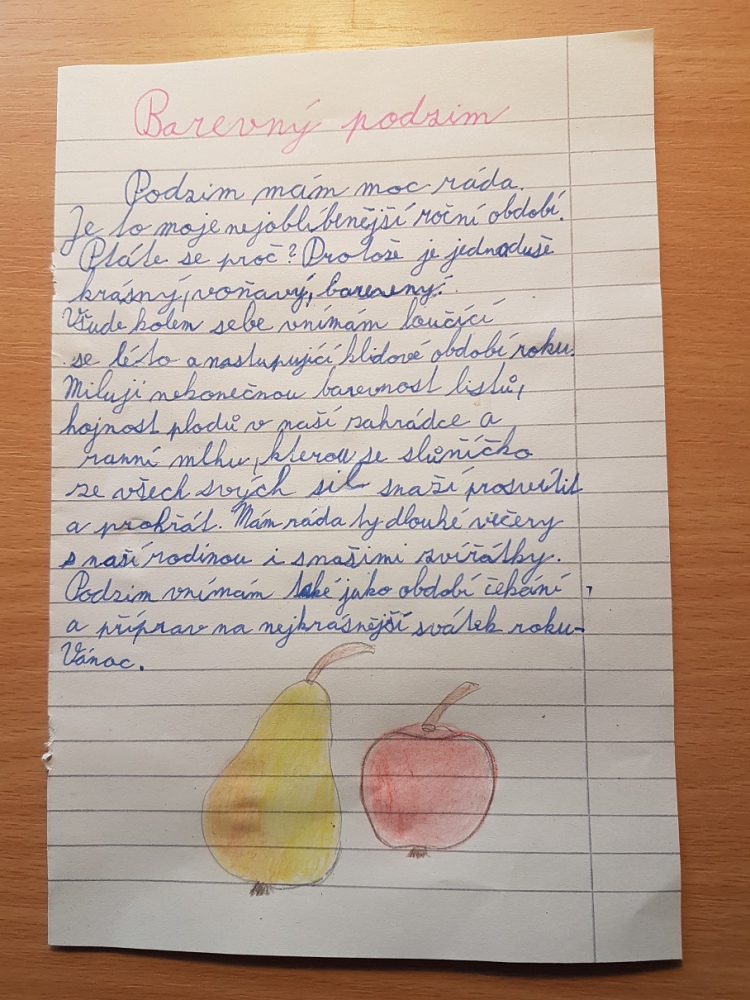 Barevný podzim
Podzim mám moc ráda.
Je to moje nejoblíbenější roční období.
Ptáte se proč? Protože je jednoduše
krásný, voňavý, barevný.
Všude kolem sebe vnímám loučící
se léto a nastupující klidové období roku.
Miluji nekonečnou barevnost listů,
hojnost plodů v naší zahrádce a
ranní mlhu, kterou se sluníčko
ze všech svých sil snaží prosvítit
a prohřát. Mám ráda ty dlouhé večery
s naší rodinou i s našimi zvířátky.
Podzim vnímám také jako období čekání,
a příprav na nejkrásnější svátek roku-
Vánoc.